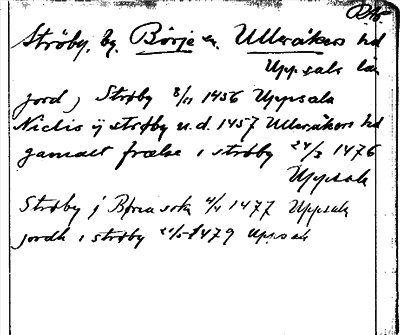 RAp.
Ströby, by. Börje sn. Ulleråkers hd
Uppsala län
jord j Ströby 8/11 1456 Uppsala
Niclis ij ströby u.d. 1457 Ulleråkers hd
gamalt frælse i ströby 24/3 1476
Uppsala
Ströby j Børia sokn 4/4 1477 Uppsala
jordh i ströby 1479 Uppsala